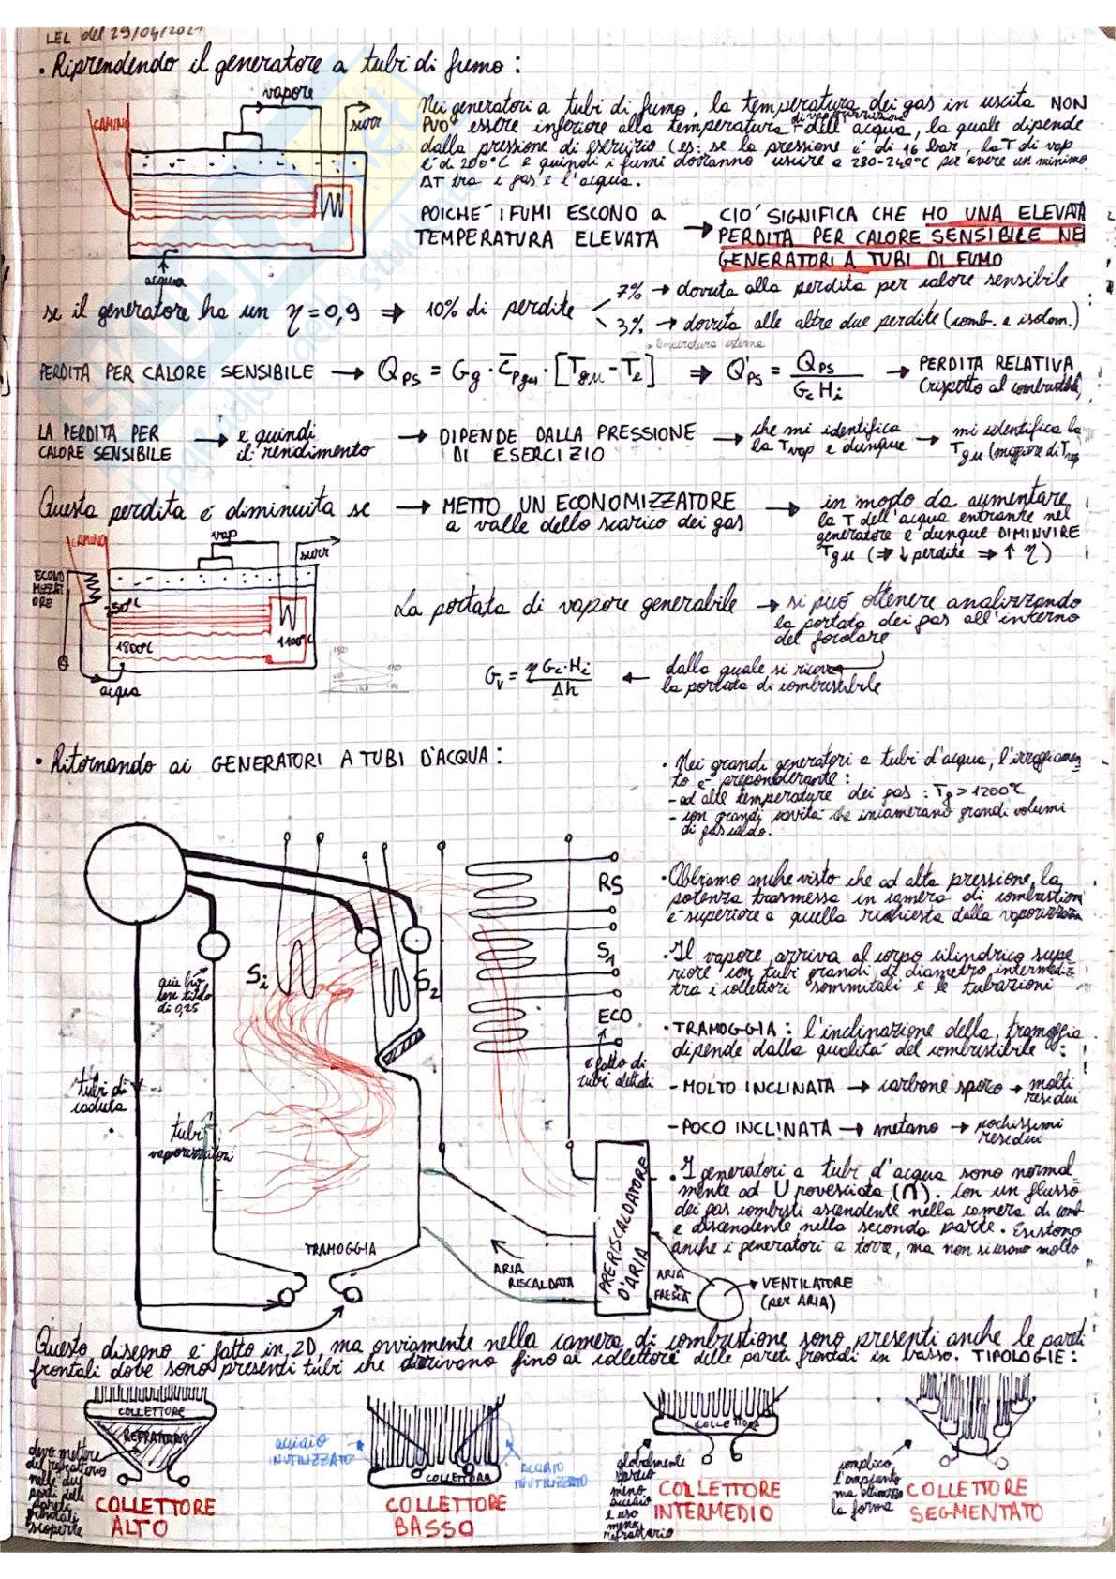 LEL del 29/04/2021
• Riprendendo il generatore a tubi di fumo:
vapore
surr
CAMINO
acqua
Nei generatori a tubi di fumo, la temperatura dei gas in uscita NON
PUO' essere inferiore alla temperatura di vaporizzazione dell'acqua, la quale dipende
dalla pressione di esercizio (es: se la pressione è di 16 bar, la T di vap
è di 200°C e quindi i fumi dovranno uscire a 230-240°C per avere un minimo
ΔT tra i gas e l'acqua.
POICHE' I FUMI ESCONO a
TEMPERATURA ELEVATA
→ CIO' SIGNIFICA CHE HO UNA ELEVATA
PERDITA PER CALORE SENSIBILE NEI
GENERATORI A TUBI DI FUMO
se il generatore ha un η=0,9 ⇒ 10% di perdite
7% → dovuta alla perdita per calore sensibile
3% → dovuta alle altre due perdite (comb. e isolam.)
temperatura esterna
PERDITA PER CALORE SENSIBILE → Qps = Gg · c̄pgu · [Tgu - Te] ⇒ Q'ps = Qps / Gc Hi → PERDITA RELATIVA
(rispetto al combustibile)
LA PERDITA PER
CALORE SENSIBILE
→ e quindi
il rendimento
→ DIPENDE DALLA PRESSIONE
DI ESERCIZIO
→ che mi identifica
la Tvap e dunque
→ mi identifica la
Tgu (maggiore di Tvap)
Questa perdita è diminuita se → METTO UN ECONOMIZZATORE
a valle dello scarico dei gas
→ in modo da aumentare
la T dell'acqua entrante nel
generatore e dunque DIMINUIRE
Tgu (⇒ ↓ perdite ⇒ ↑ η)
vap
surr
CAMINO
ECONO
MIZZAT
ORE
1800°C
1100°C
acqua
La portata di vapore generabile → si può ottenere analizzando
la portata dei gas all'interno
del focolare
Gv = η Gc·Hi / Δh ← dalla quale si ricava
la portata di combustibile
• Ritornando ai GENERATORI A TUBI D'ACQUA:
• Nei grandi generatori a tubi d'acqua, l'irraggiamen
to è preponderante:
- ad alte temperature dei gas: Tg > 1200°C
- con grandi cavità che incamerano grandi volumi
di gas caldo.
• Abbiamo anche visto che ad alta pressione, la
potenza trasmessa in camera di combustione
è superiore a quella richiesta dalla vaporizzazione
• Il vapore arriva al corpo cilindrico supe
riore con tubi grandi di diametro intermedi
tra i collettori sommitali e le tubazioni
• TRAMOGGIA: l'inclinazione della tramoggia
dipende dalla qualità del combustibile:
- MOLTO INCLINATA → carbone sporco → molti
residui
- POCO INCLINATA → metano → pochissimi
residui
• I generatori a tubi d'acqua sono normal
mente ad U rovesciata (∩). Con un flusso
dei gas combusti ascendente nella camera di comb
e discendente nella seconda parte. Esistono
anche i generatori a torre, ma non si usano molto
RS
S1
ECO
è fatto di
tubi alettati
Si
S2
qui ho
di 0,25
tubi di
caduta
tubi
vaporizzatori
TRAMOGGIA
ARIA
RISCALDATA
PRERISCALDATORE
D'ARIA
ARIA
FRESCA
VENTILATORE
(per ARIA)
Questo disegno è fatto in 2D, ma ovviamente nella camera di combustione sono presenti anche le pareti
frontali dove sono presenti tubi che derivano fino ai collettori delle pareti frontali in basso. TIPOLOGIE:
COLLETTORE
REFRATTARIO
devo mettere
del refrattario
nelle due
parti delle
pareti
frontali
scoperte
COLLETTORE
ALTO
acciaio
INUTILIZZATO
COLLETTORE
ACCIAIO
INUTILIZZATO
COLLETTORE
BASSO
COLLETTORE
globalmente
meno
acciaio
e uso
meno
refrattario
COLLETTORE
INTERMEDIO
complico
l'impianto
ma ottimizzo
la forma
COLLETTORE
SEGMENTATO